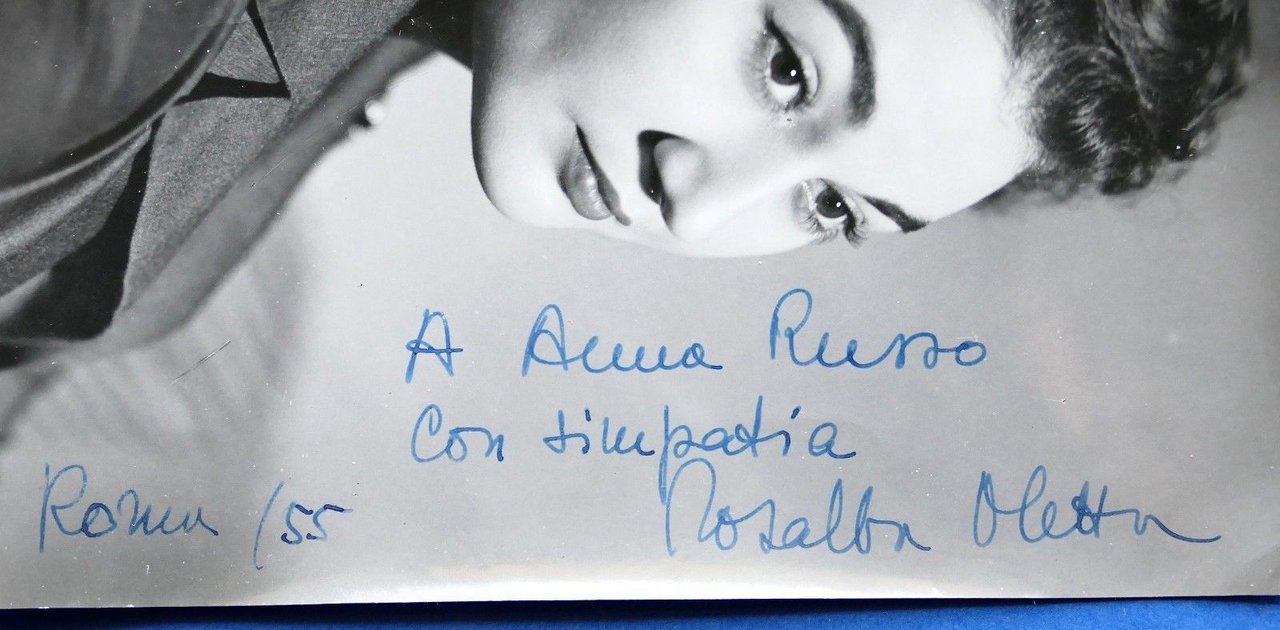 A Anna Russo
Con simpatia
Rosalba Oletta
Roma /55